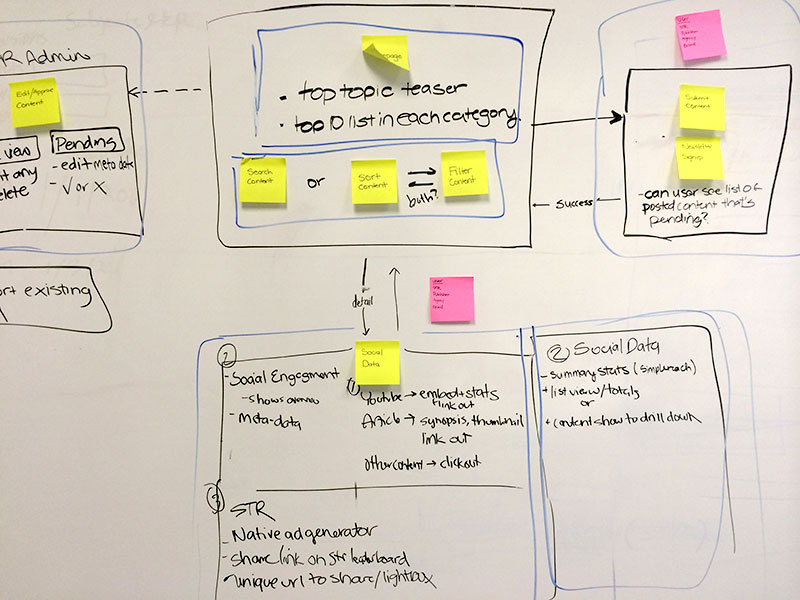 R Admin
Edit/Approve
Content
view
t any
elete
Pending
- edit meta data
- √ or X
ort existing
• top topic teaser
• top 10 list in each category
Search
Content
or
Sort
Content
both?
Filter
Content
User
Submit
Content
Newsletter
Signup
- can user see list of
posted content that's
pending?
Success
detail
User
Social
Data
2
- Social Engagement
- shows
- meta-data
1
Youtube → embed + stats
+ link out
Article → synopsis, thumbnail
link out
other content → click out
2 Social Data
- summary stats (simplereach)
+ list view/totals
or
+ content show to drill down
3
STR
- Native ad generator
- Share link on str leaderboard
- Unique url to share/lightbox